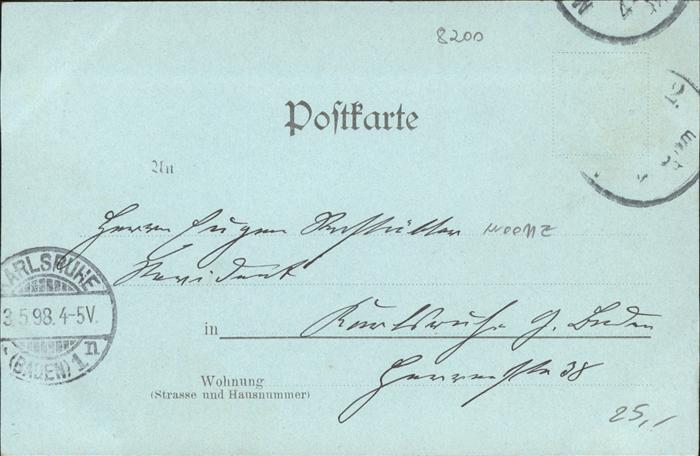 8200
Postkarte
An
Herrn Eugen
in Karlsruhe Baden
Wohnung
Herrenstr 38
(Strasse und Hausnummer)
KARLSRUHE
3.5.98. 4-5V.
(BADEN) 1n
25,1